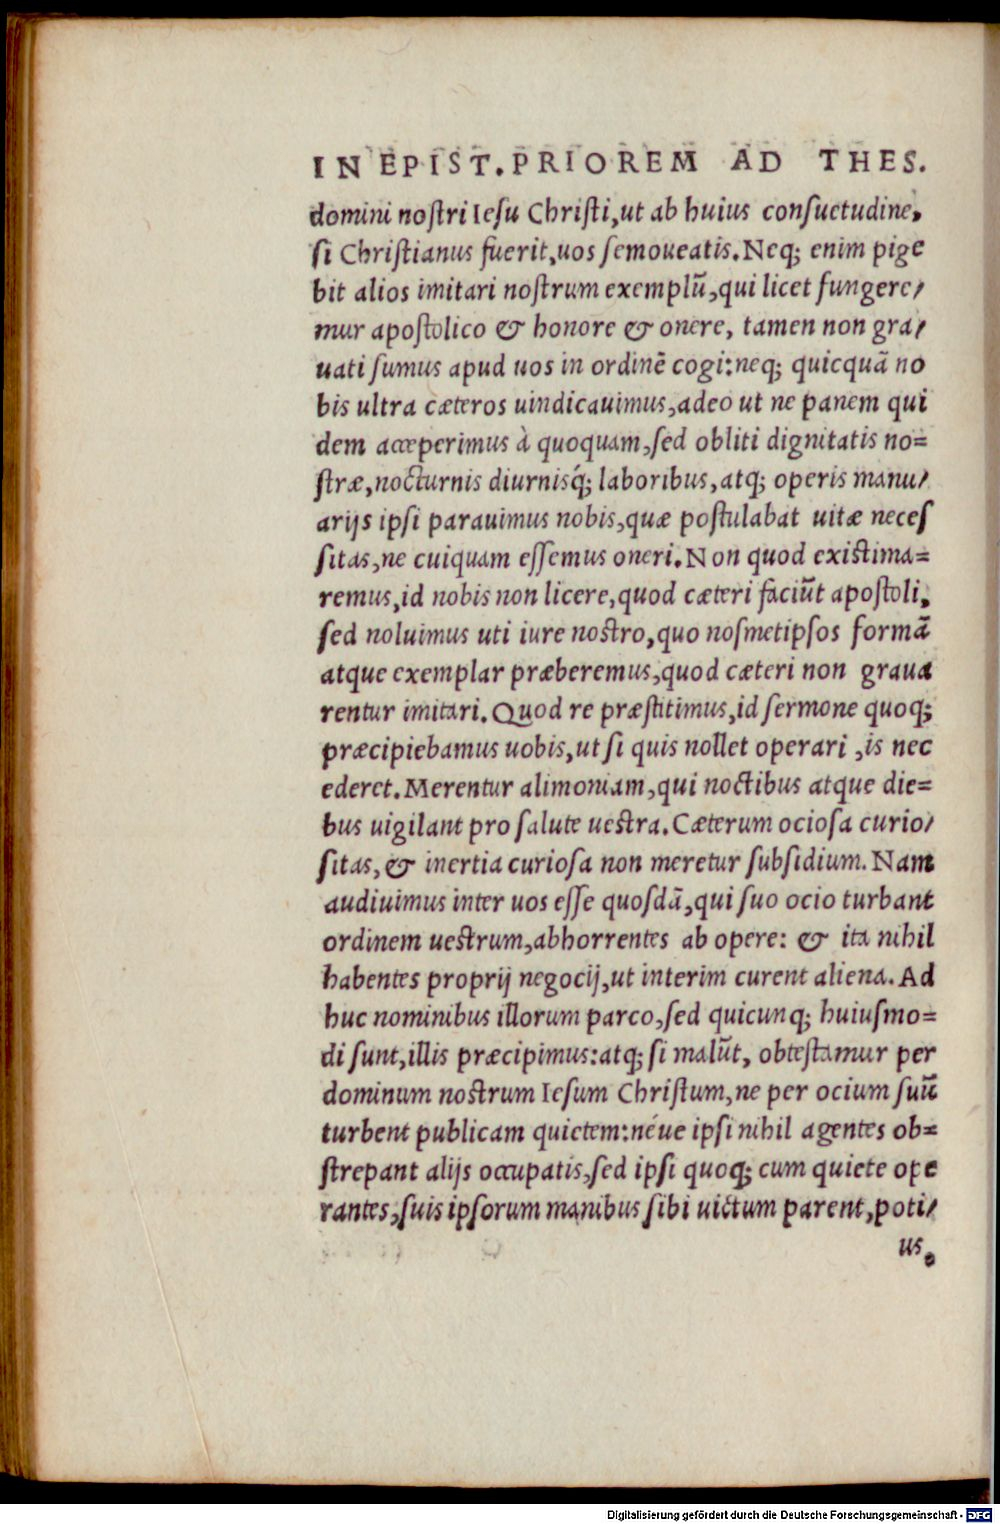 IN EPIST. PRIOREM AD THES.
domini noſtri Ieſu Chriſti, ut ab huius conſuetudine,
ſi Chriſtianus fuerit, uos ſemoueatis. Neq; enim pige
bit alios imitari noſtrum exemplũ, qui licet fungere/
mur apoſtolico & honore & onere, tamen non gra/
uati ſumus apud uos in ordinẽ cogi: neq; quicquã no
bis ultra cæteros uindicauimus, adeo ut ne panem qui
dem acceperimus à quoquam, ſed obliti dignitatis no=
ſtræ, nocturnis diurnisq́; laboribus, atq; operis manu/
arijs ipſi parauimus nobis, quæ poſtulabat uitæ neceſ
ſitas, ne cuiquam eſſemus oneri. Non quod exiſtima=
remus, id nobis non licere, quod cæteri faciũt apoſtoli,
ſed noluimus uti iure noſtro, quo noſmetipſos formã
atque exemplar præberemus, quod cæteri non graua
rentur imitari. Quod re præſtitimus, id ſermone quoq;
præcipiebamus uobis, ut ſi quis nollet operari, is nec
ederet. Merentur alimoniam, qui noctibus atque die=
bus uigilant pro ſalute ueſtra. Cæterum ocioſa curio/
ſitas, & inertia curioſa non meretur ſubſidium. Nam
audiuimus inter uos eſſe quoſdã, qui ſuo ocio turbant
ordinem ueſtrum, abhorrentes ab opere: & ita nihil
habentes proprij negocij, ut interim curent aliena. Ad
huc nominibus illorum parco, ſed quicunq; huiuſmo=
di ſunt, illis præcipimus: atq; ſi malũt, obteſtamur per
dominum noſtrum Ieſum Chriſtum, ne per ocium ſuũ
turbent publicam quietem: néue ipſi nihil agentes ob=
ſtrepant alijs occupatis, ſed ipſi quoq; cum quiete ope
rantes, ſuis ipſorum manibus ſibi uictum parent, poti/
us.
Digitalisierung gefördert durch die Deutsche Forschungsgemeinschaft - DFG